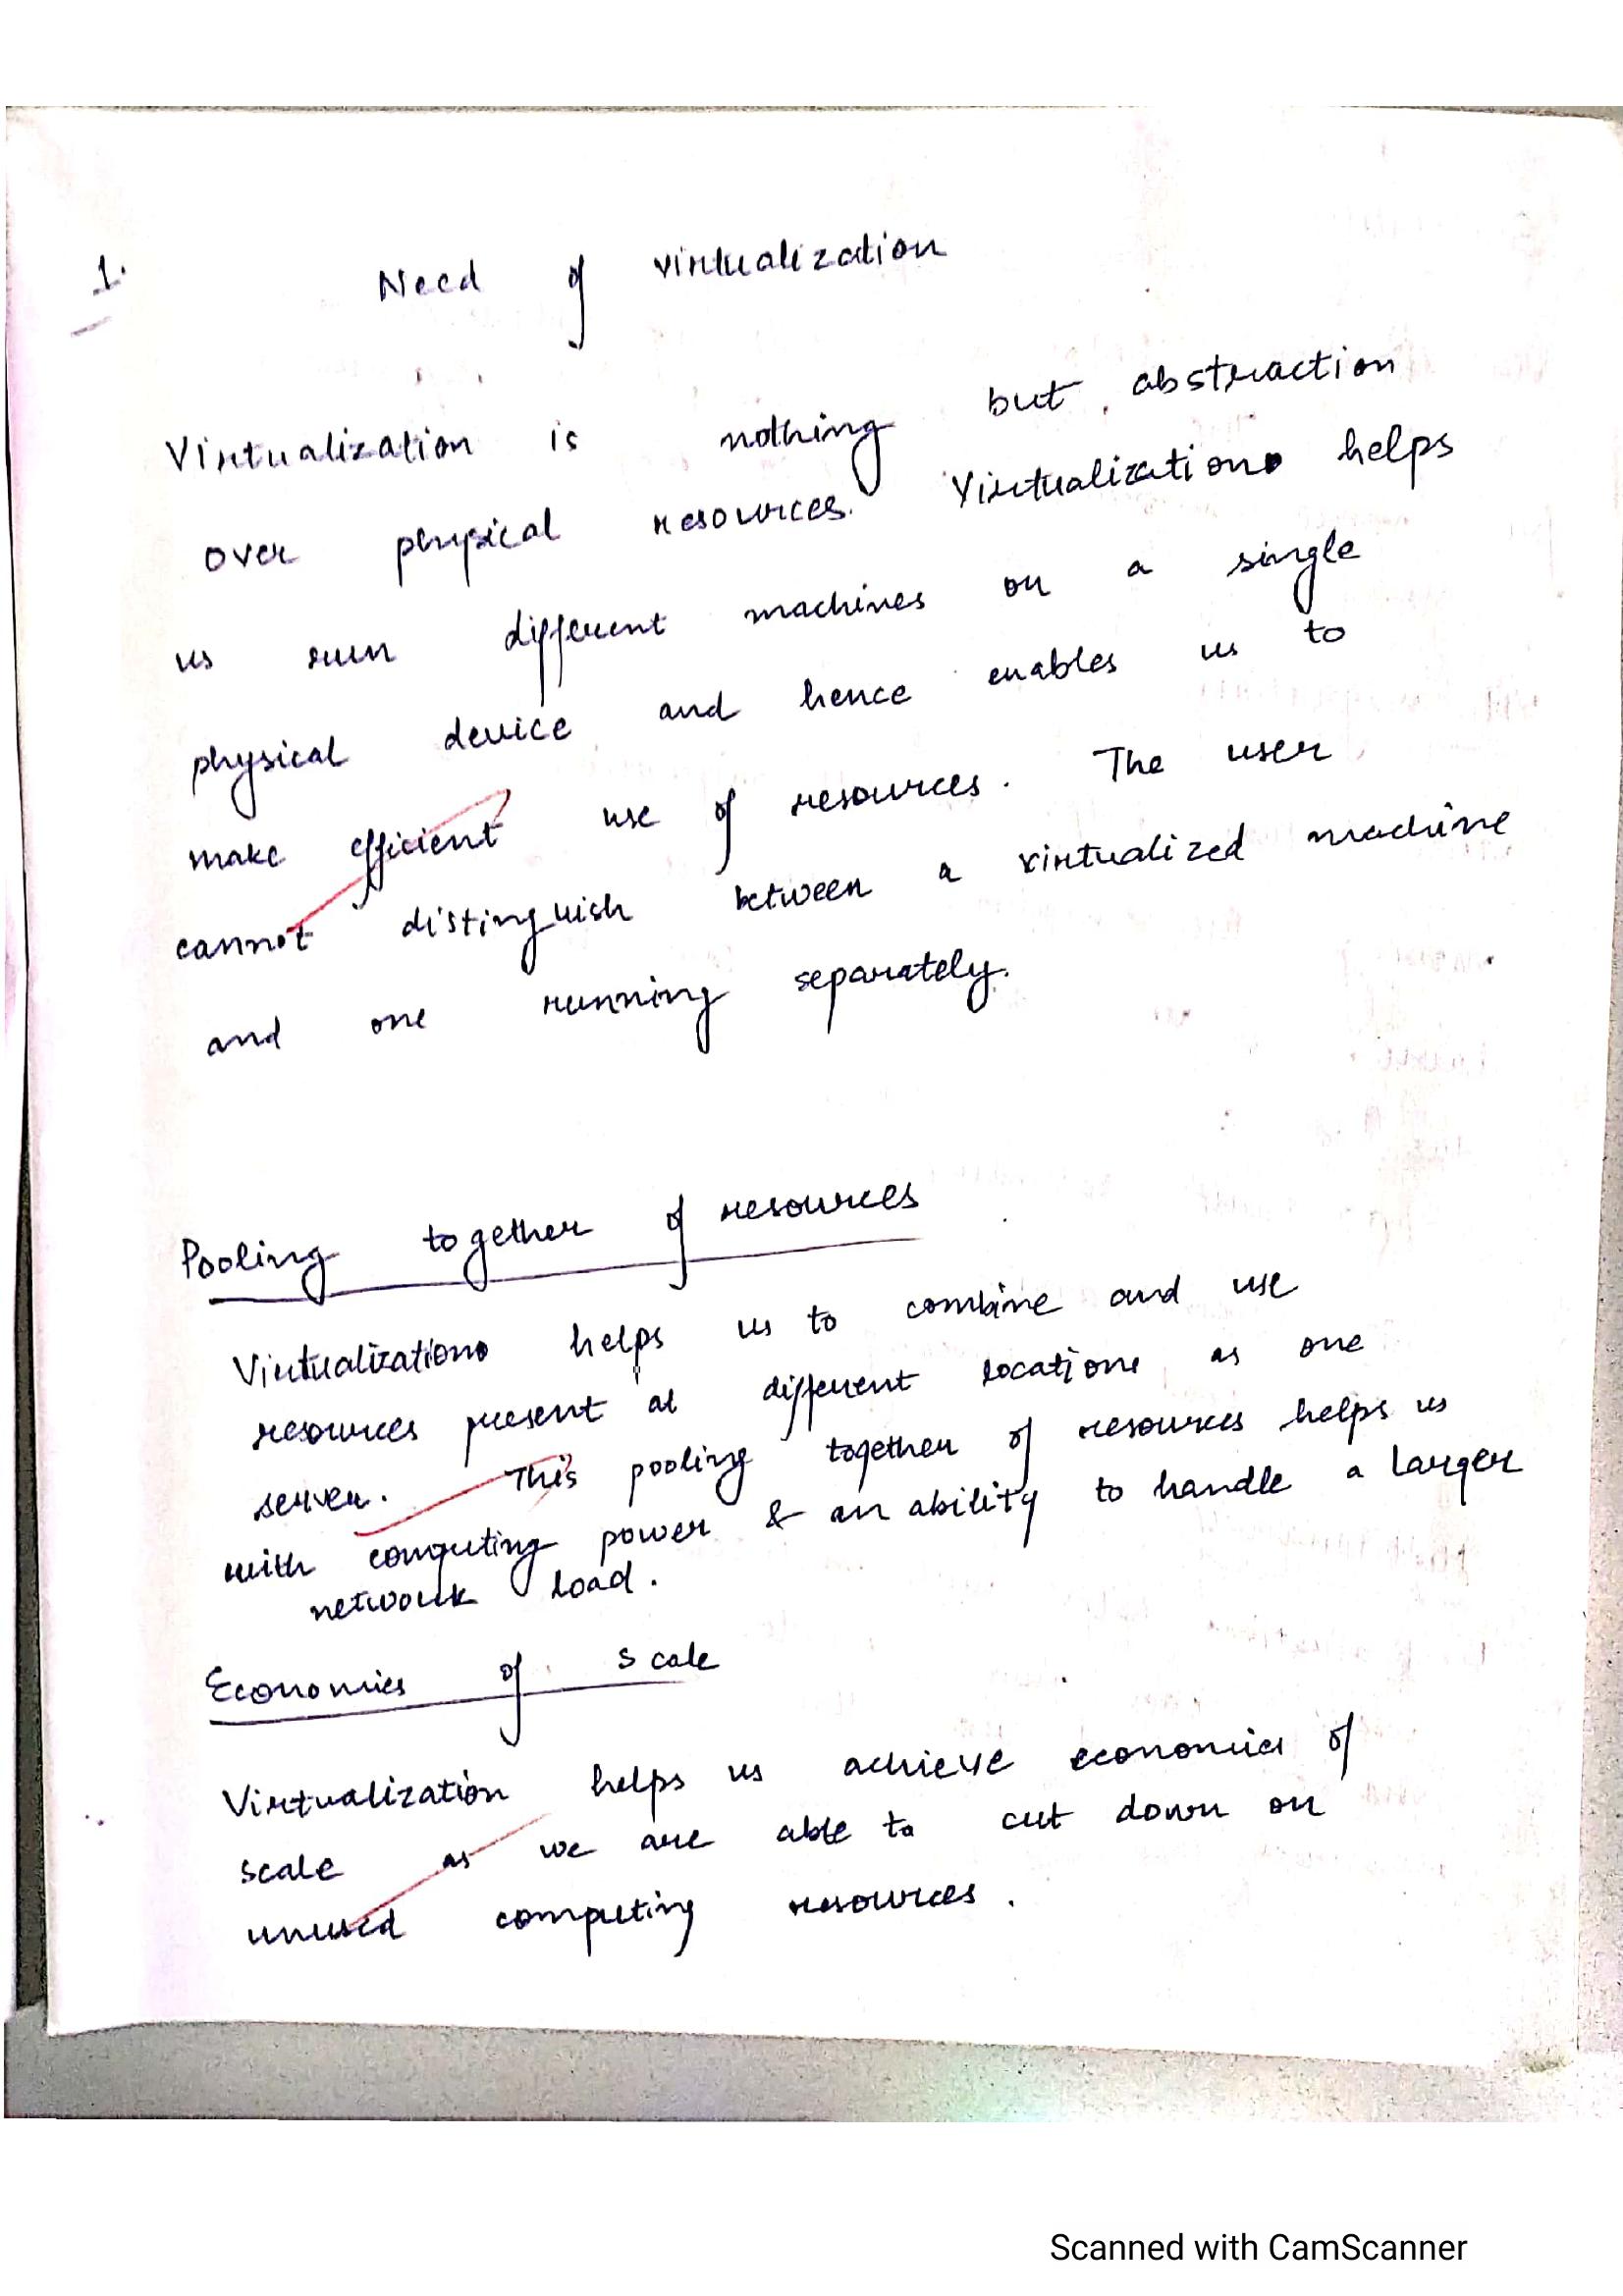 1. Need of virtualization
Virtualization is nothing but abstraction
over physical resources. Virtualization helps
us run different machines on a single
physical device and hence enables us to
make efficient use of resources. The user
cannot distinguish between a virtualized machine
and one running separately.
Pooling together of resources
Virtualization helps us to combine and use
resources present at different locations as one
server. This pooling together of resources helps us
with computing power & an ability to handle a larger
network load.
Economies of scale
Virtualization helps us achieve economies of
scale as we are able to cut down on
unused computing resources.
Scanned with CamScanner